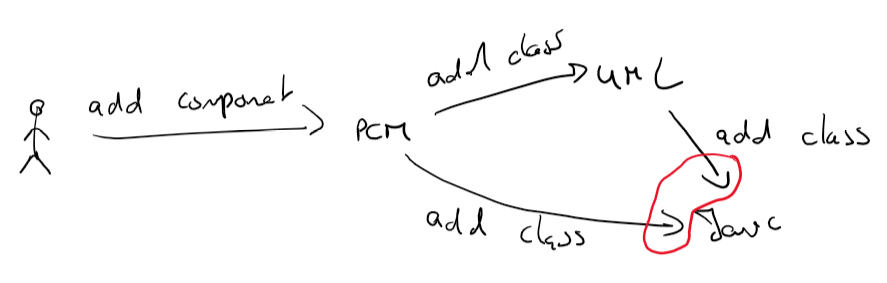 add componet
PCM
add class
UML
add class
add class
Java